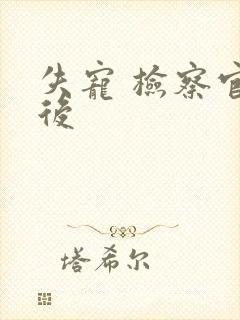 失寵 檢察官
後
塔希尔